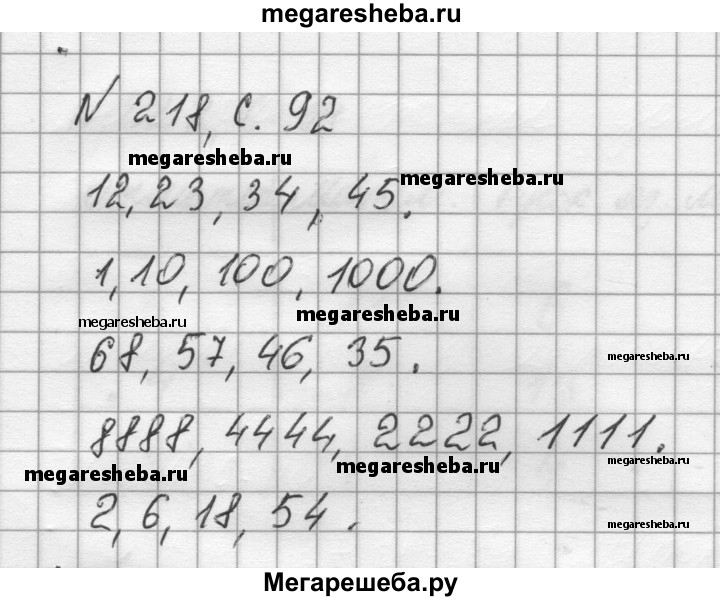 megaresheba.ru
№ 218, с. 92
megaresheba.ru
megaresheba.ru
12, 23, 34, 45.
1, 10, 100, 1000.
megaresheba.ru
megaresheba.ru
68, 57, 46, 35.
megaresheba.ru
8888, 4444, 2222, 1111.
megaresheba.ru
megaresheba.ru
megaresheba.ru
2, 6, 18, 54.
megaresheba.ru
Мегарешеба.ру